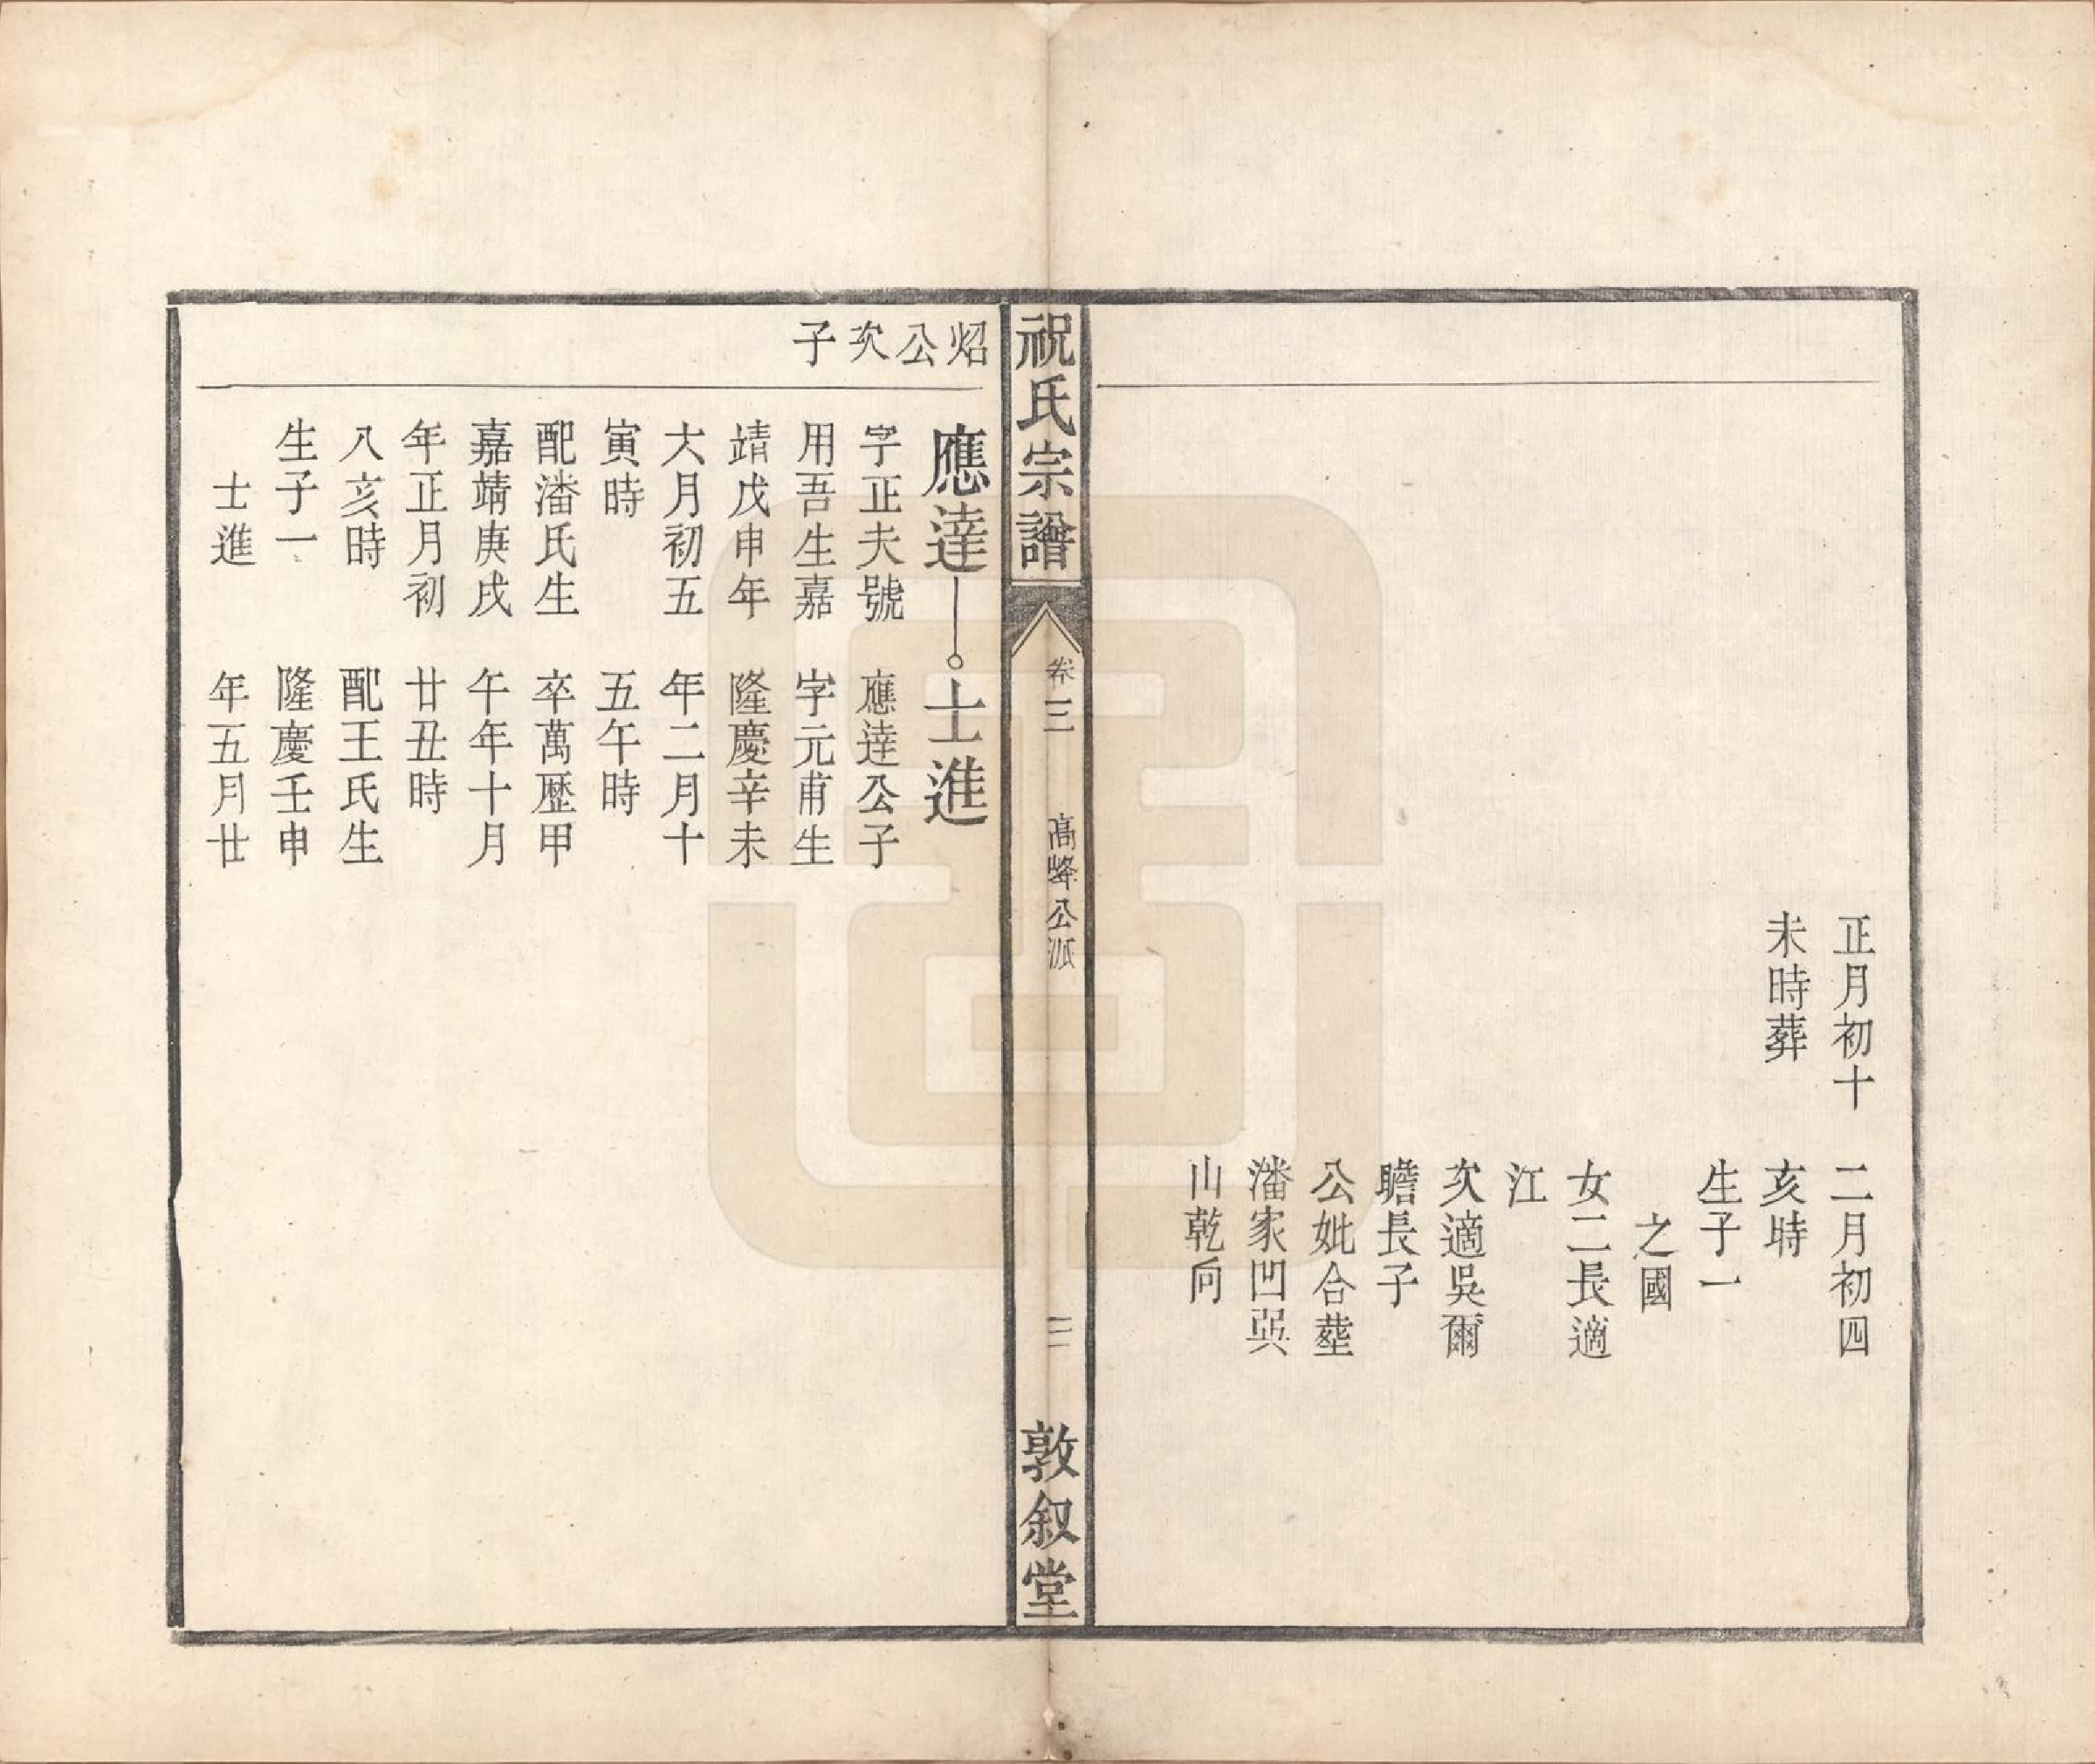 正月初十
未時葬
二月初四
亥時
生子一
之國
女二長適
江
次適吳爾
瞻長子
公妣合塟
潘家凹巽
山乾向
祝氏宗譜
卷三
高峰公派
三
敦叙堂
炤公次子
應達
字正夫號
用吾生嘉
靖戊申年
六月初五
寅時
配潘氏生
嘉靖庚戌
年正月初
八亥時
生子一
士進
士進
應達公子
字元甫生
隆慶辛未
年二月十
五午時
卒萬歷甲
午年十月
廿丑時
配王氏生
隆慶壬申
年五月廿